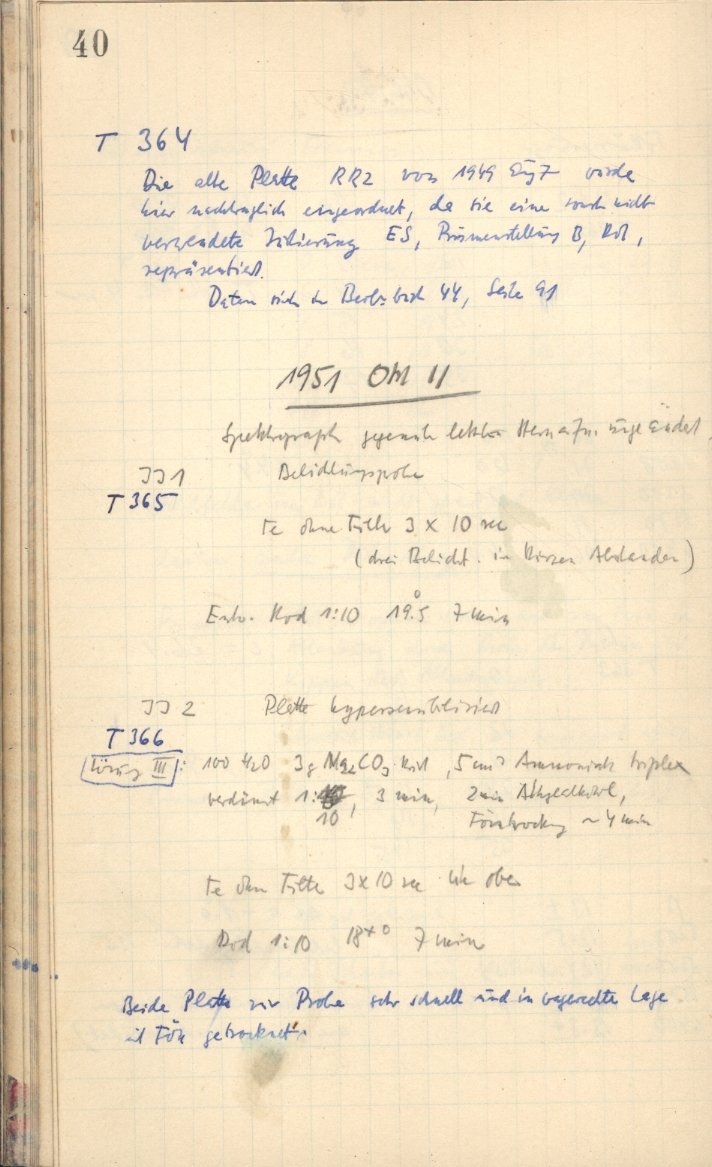 40
T 364
Die alte Platte RR2 von 1949 wurde
hier nachträglich eingeordnet, da sie eine sonst nicht
verwendete Justierung ES, Prismenstellung B, Rot,
repräsentiert.
Daten sich in Beob. buch 44, Seite 91
1951 OM II
Spektrograph gegenüber letzter ungeändert,
JJ1 Belichtungsprobe
T 365
Fe ohne Filter 3 x 10 sec
(drei Belicht. in kurzen Abständen)
Entw. Rod 1:10 19.5° 7 min
JJ 2 Platte hypersensibilisiert
T 366
Lösung III: 100 H2O 3g Na2CO3 krist, 5 cm3 Ammoniak triplex
verdünnt 1:10, 3 min, 2 min Äthylalkohol,
Föntrockng ~ 4 min
Fe ohne Filter 3x10 sec wie oben
Rod 1:10 18 7 min
Beide Platten zur Probe sehr schnell und in Lage
mit Fön getrocknet.